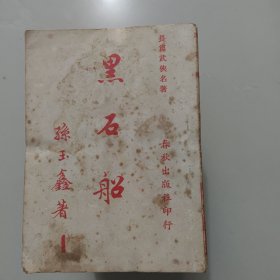 長篇武俠名著
黑石船
孫玉鑫著
1
春秋出版社印行